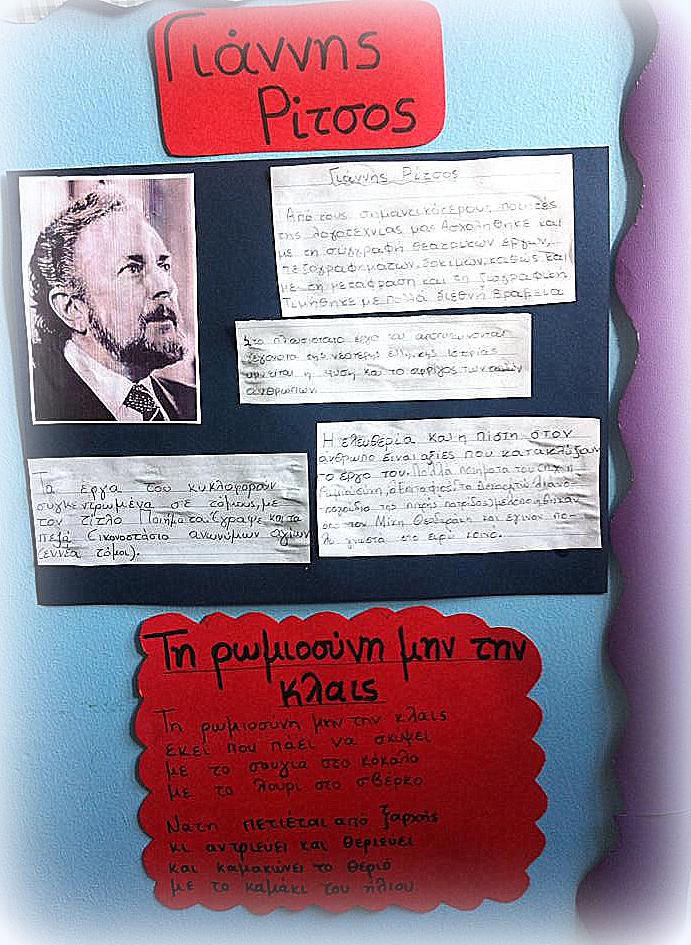 Γιάννης
Ρίτσος
Γιάννης Ρίτσος
Από τους σημαντικότερους ποιητές
της λογοτεχνίας μας. Ασχολήθηκε και
με τη συγγραφή θεατρικών έργων,
πεζογραφημάτων, δοκιμίων, καθώς και
με τη μετάφραση και τη ζωγραφική
Τιμήθηκε με πολλά διεθνή βραβεία
Στο πλουσιότατο έργο του αποτυπώνονται
γεγονότα της νεότερης ελλ/κης ιστορίας
υμνείται η φύση και το σφρίγος των απλών
ανθρώπων
Η ελευθερία και η πίστη στον
άνθρωπο είναι αξίες που κατακλύζουν
το έργο του. Πολλά ποιήματα του (π.χ η
Ρωμιοσύνη, ο Επιτάφιος, Τα Δεκαοχτώ λιανο-
τράγουδα της πικρής πατρίδας) μελοποιήθηκαν
από τον Μίκη Θεοδωράκη και έγιναν πο-
λύ γνωστά στο ευρύ κοινό.
Τα έργα του κυκλοφορούν
συγκεντρωμένα σε τόμους, με
τον τίτλο Ποιήματα. Έγραψε και τα
πεζά Εικονοστάσιο ανωνύμων αγίων
(εννέα τόμοι).
Τη ρωμιοσύνη μην την
κλαις
Τη ρωμιοσύνη μην την κλαις
εκεί που πάει να σκύψει
με το σουγιά στο κόκαλο
με το λουρί στο σβέρκο
Νάτη πετιέται από ξαρχής
κι αντριεύει και θεριεύει
και καμακώνει το θεριό
με το καμάκι του ήλιου.